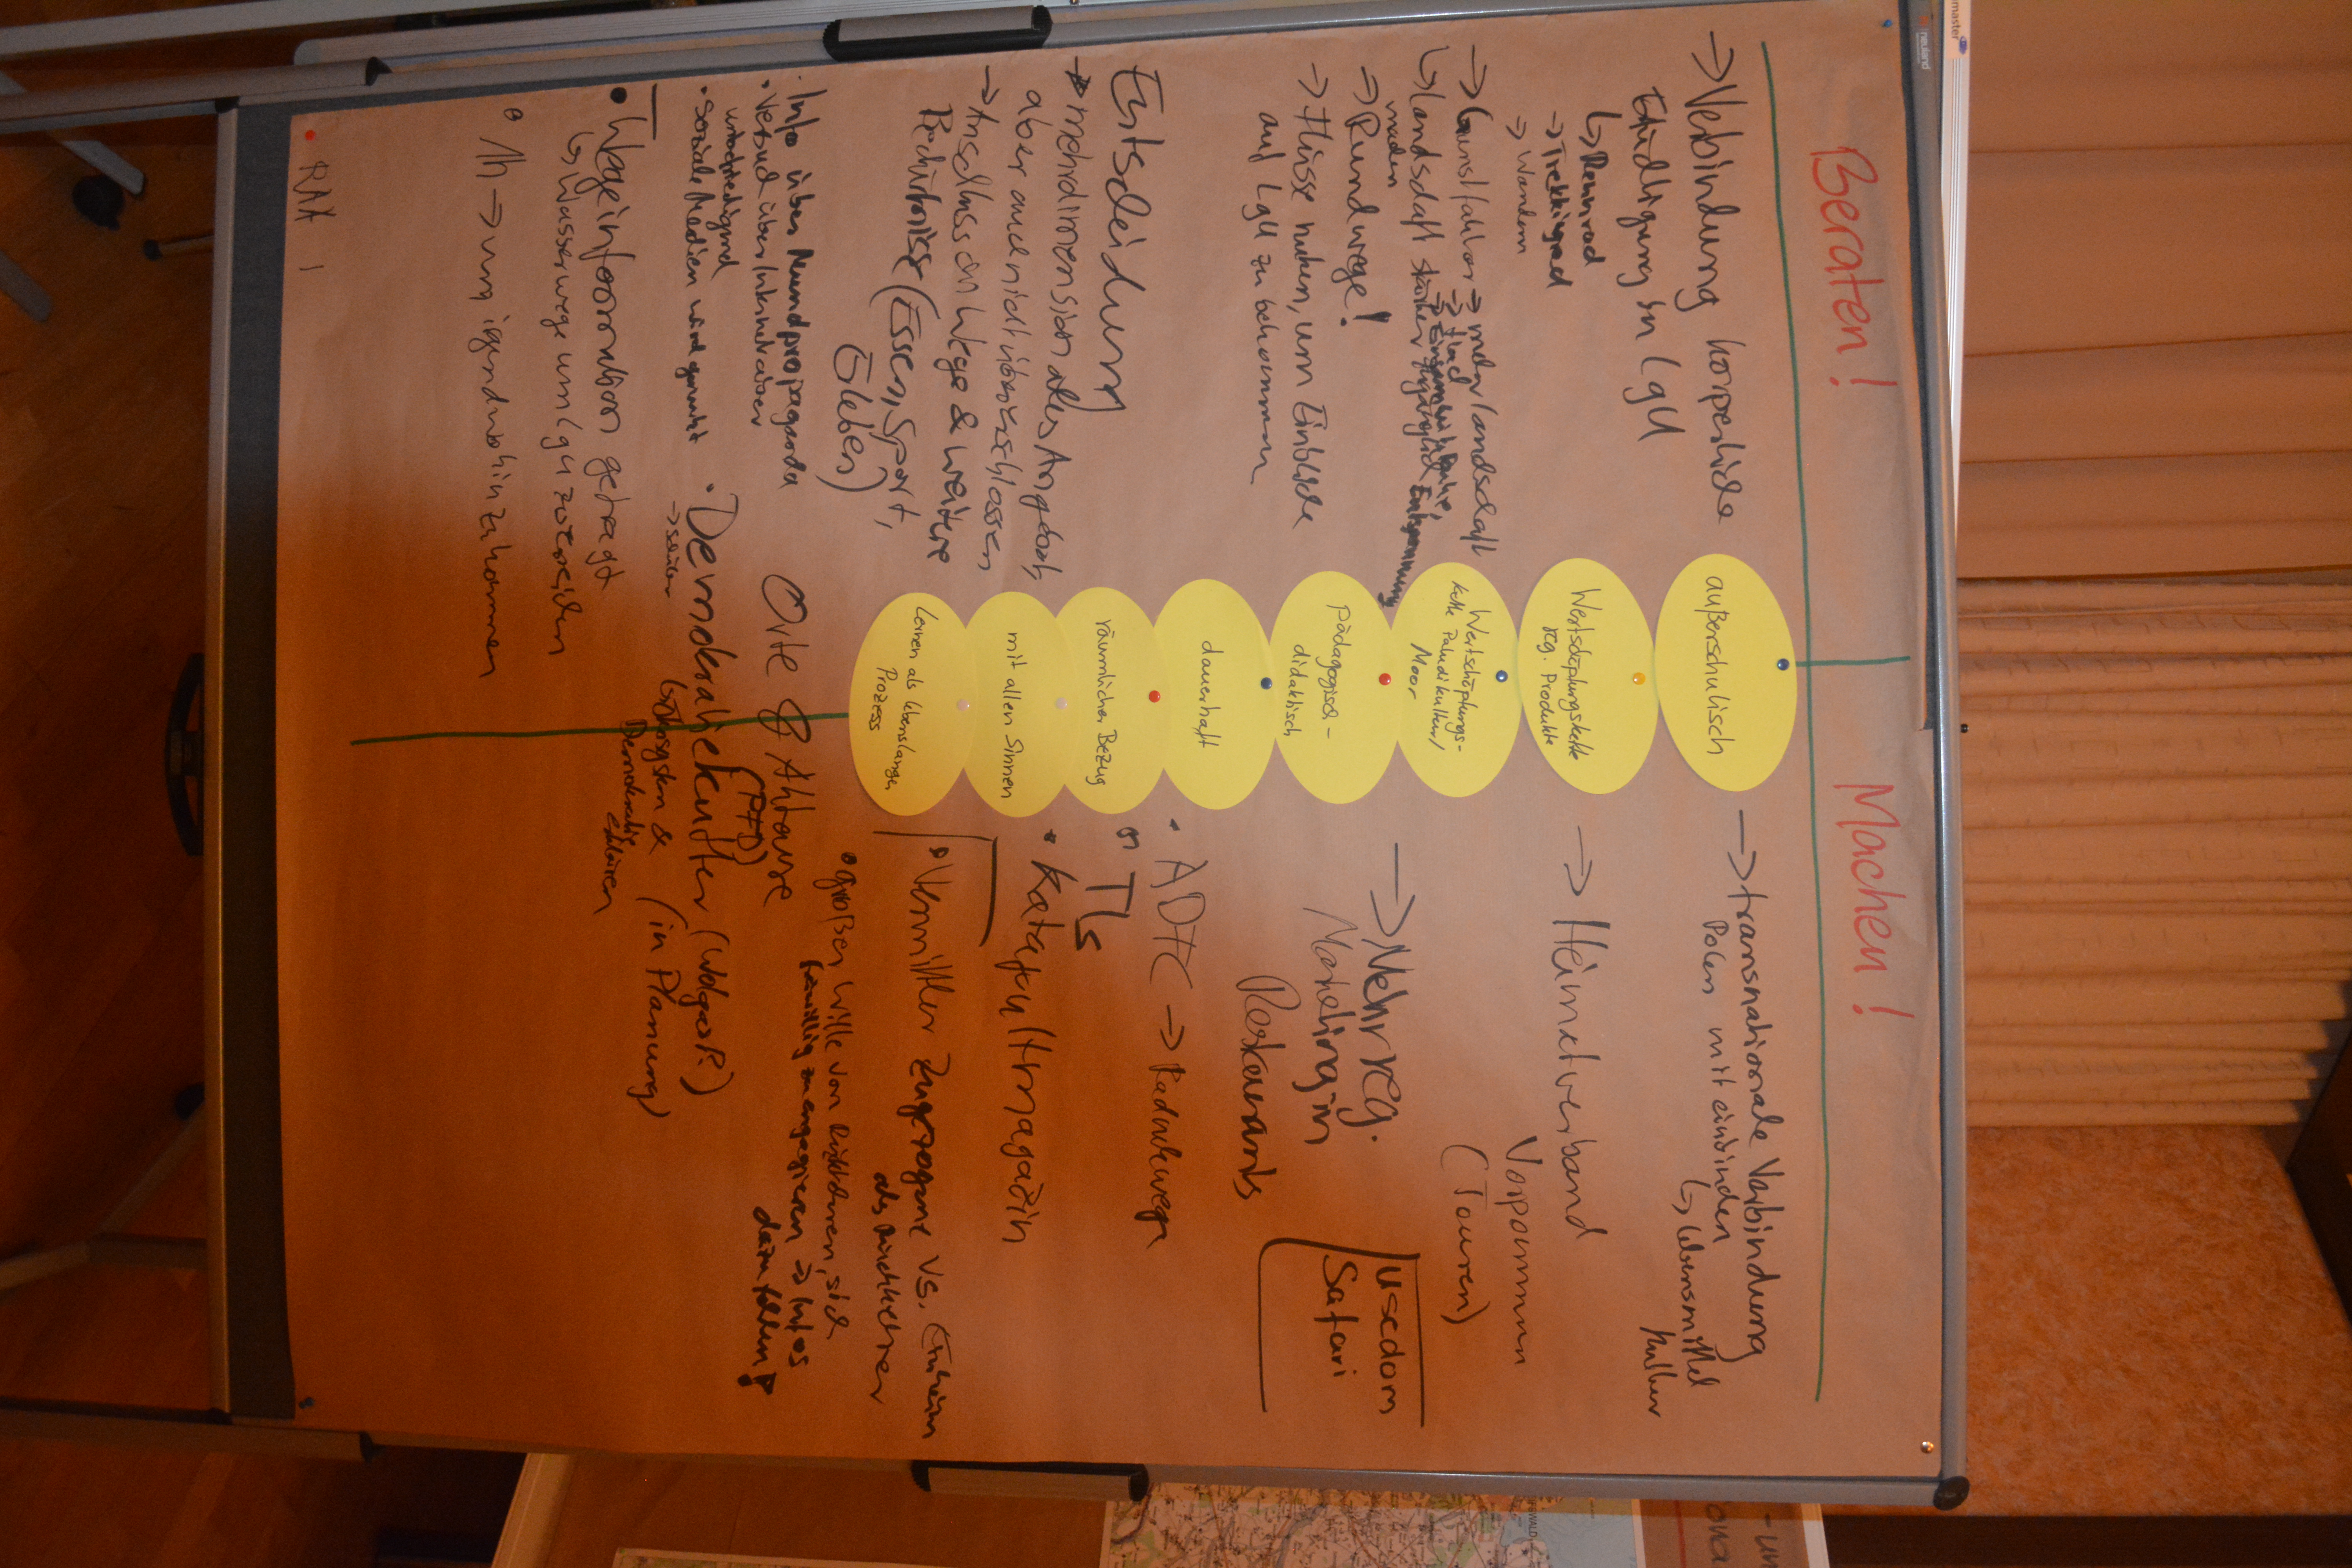 Beraten!
Machen!
→ Verbindung körperliche
Ertüchtigung in LgU
↳ Rennrad
→ Trekkingrad
→ Wandern
→ Gunstfaktor → mehr Landschaft
↳ Landschaft stärker
machen
→ Rundwege!
→ Flüsse nutzen, um Einblicke
auf LgU zu bekommen
Entscheidung
→ mehrdimensionales Angebot,
aber auch nicht überschlossen
→ Anschluss an Wege & weitere
Bedürfnisse (Essen, Sport,
Erleben)
· Info über Mundpropaganda
· Versuch über Inkubator
unbefriedigend
· Soziale Medien wird genutzt
• Wegeinformation gefragt
↳ Wasserwege um LgU zu erreichen
• 1h → um irgendwohin zu kommen
RAA 1
außerschulisch
Wertschöpfungskette
reg. Produkte
Wertschöpfungs-
kette Paludikultur/
Moor
Pädagogisch-
didaktisch
dauerhaft
räumlicher Bezug
mit allen Sinnen
Lernen als lebenslanger
Prozess
→ transnationale Verbindung
Polen mit einbinden
↳ Lebensmittel
Kultur
→ Heimatverband
Vorpommern
(Touren)
→ Mehr reg.
Marketing in
Restaurants
Usedom
Safari
• ADFC → Radwege
• TIs
• Katapultmagazin
• Vermittler Zugezogene vs. Einheim
als Aufklärer
• großer Wille von sich
freiwillig zu engagieren → Infos
dazu fehlen!
Orte & Akteure
(PfD)
• Demokratiekutter (Wolgast)
→ Schüler
(in Planung)
↳ Ökosystem &
Demokratie
erklären
neuland